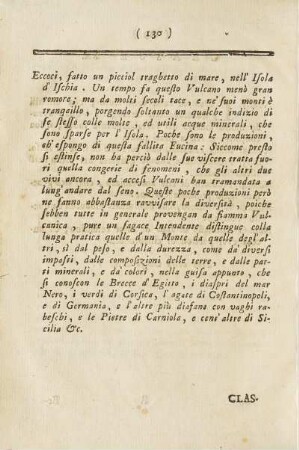 ( 130 )
Eccoci, fatto un picciol traghetto di mare, nell' Isola
d' Ischia. Un tempo fa questo Vulcano menò gran
romore; ma da molti secoli tace, e ne' suoi monti è
tranquillo, porgendo soltanto un qualche indizio di
se stesso colle molte, ed utili acque minerali, che
sono sparse per l' Isola. Poche sono le produzioni,
ch' espongo di questa fallita Fucina: Siccome presto
si estinse, non ha perciò dalle sue viscere tratta fuo-
ri quella congerie di fenomeni, che gli altri due
vivi ancora, ed accesi Vulcani han tramandata a
lung' andar dal seno. Queste poche produzioni però
ne fanno abbastanza ravvisare la diversità, poiche
sebben tutte in generale provengan da fiamma Vul-
canica, pure un sagace Intendente distingue colla
lunga pratica quelle d' un Monte da quelle degl' al-
tri, sì dal peso, e dalla durezza, come da diversi
impasti, dalle composizioni delle terre, e dalle par-
ti minerali, e da' colori, nella guisa appunto, che
si conoscon le Brecce d' Egitto, i diaspri del mar
Nero, i verdi di Corsica, l' agate di Costantinopoli,
e di Germania, e l' altre più diafane con vaghi ra-
beschi, e le Pietre di Carniola, e cent' altre di Si-
cilia &c.
CLAS-